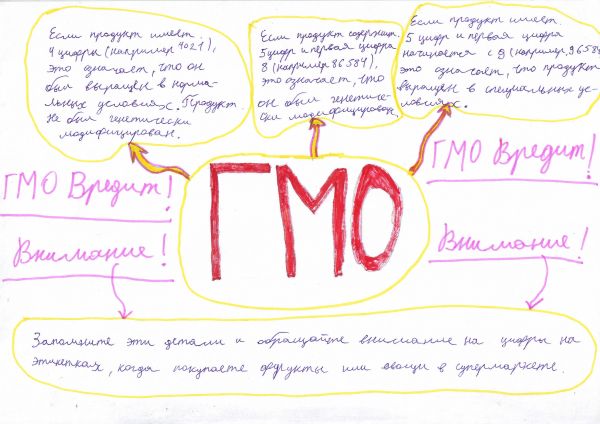 Если продукт имеет
4 цифры (например 4021),
это означает, что он
был выращен в норма-
льных условиях. Продукт
не был генетически
модифицирован.
Если продукт содержит
5 цифр и первая цифра
8 (например 86584).
это означает, что
он был генетиче-
ски модифицирован
Если продукт имеет
5 цифр и первая цифра
начинается с 9 (например, 96584
это означает, что продукт
выращен в специальных ус-
ловиях.
ГМО Вредит!
Внимание!
ГМО
ГМО Вредит!
Внимание!
Запомните эти детали и обращайте внимание на цифры на
этикетках, когда покупаете фрукты или овощи в супермаркете.